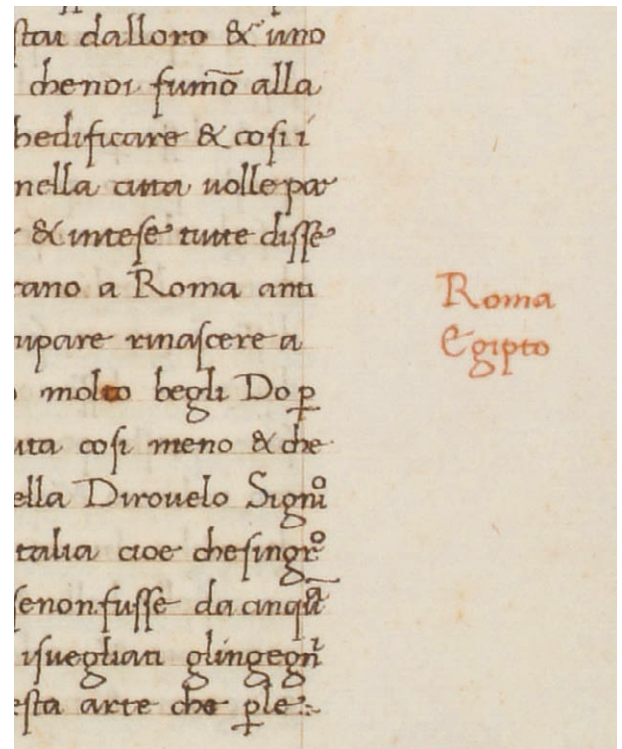 stai dalloro & uno
chenoi fumō alla
hedificare & cosi i
nella citta uolle par
& intese tutte disse
cano a Roma anti
upare rinascere a
molto begli Do p̱
uta cosi meno & che
ella Dirouelo Signͦi
talia cioe chesingrͦ
senonfusse da cinqͣ
isuegliati glingegnⁱ
esta arte che p̱le
Roma
Egipto